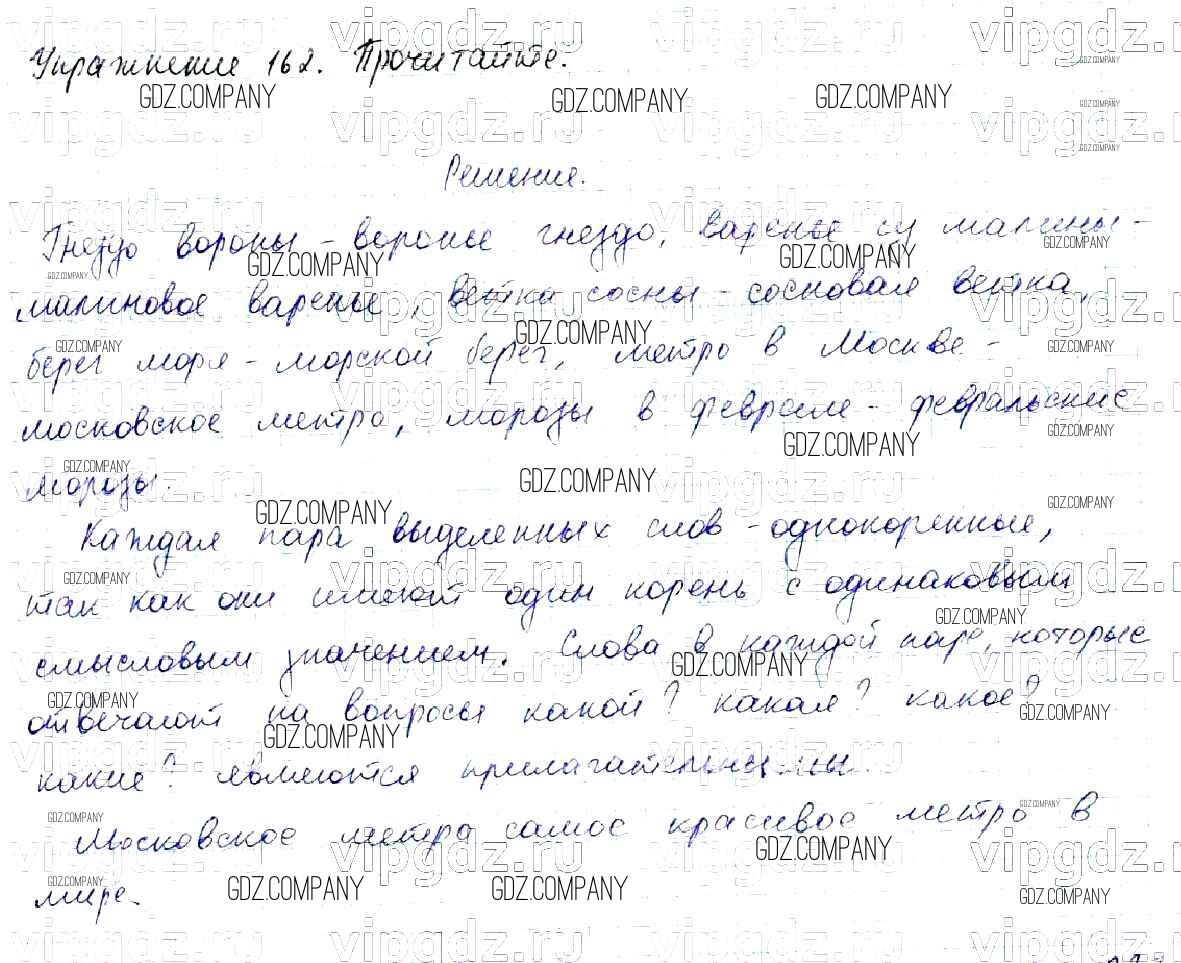 Упражнение 162. Прочитайте.
Решение.
Гнездо вороны - воронье гнездо, варенье из малины -
малиновое варенье, ветка сосны - сосновая ветка,
берег моря - морской берег, метро в Москве -
московское метро, морозы в феврале - февральские
морозы.
Каждая пара выделенных слов - однокоренные,
так как они имеют один корень с одинаковым
смысловым значением. Слова в каждой паре, которые
отвечают на вопросы какой? какая? какое?
какие? являются прилагательными.
Московское метро самое красивое метро в
мире.
vipgdz.ru
GDZ.COMPANY